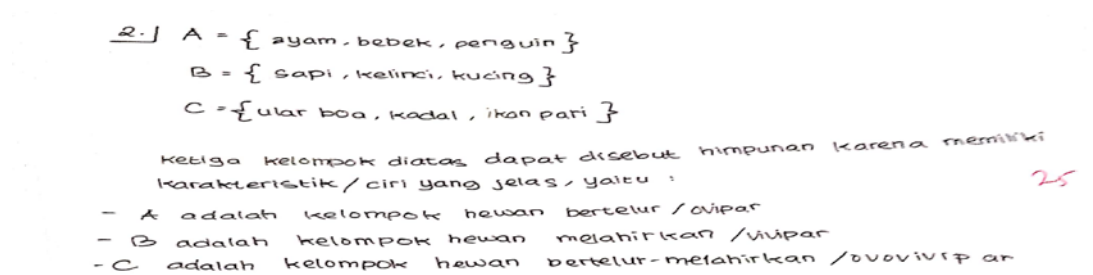 2.) A = { ayam, bebek, penguin }
B = { sapi, kelinci, kucing }
C = { ular boa, kadal, ikan pari }
ketiga kelompok diatas dapat disebut himpunan karena memiliki
karakteristik / ciri yang jelas, yaitu :
25
- A adalah kelompok hewan bertelur / ovipar
- B adalah kelompok hewan melahirkan / vivipar
- C adalah kelompok hewan bertelur-melahirkan / ovovivipar